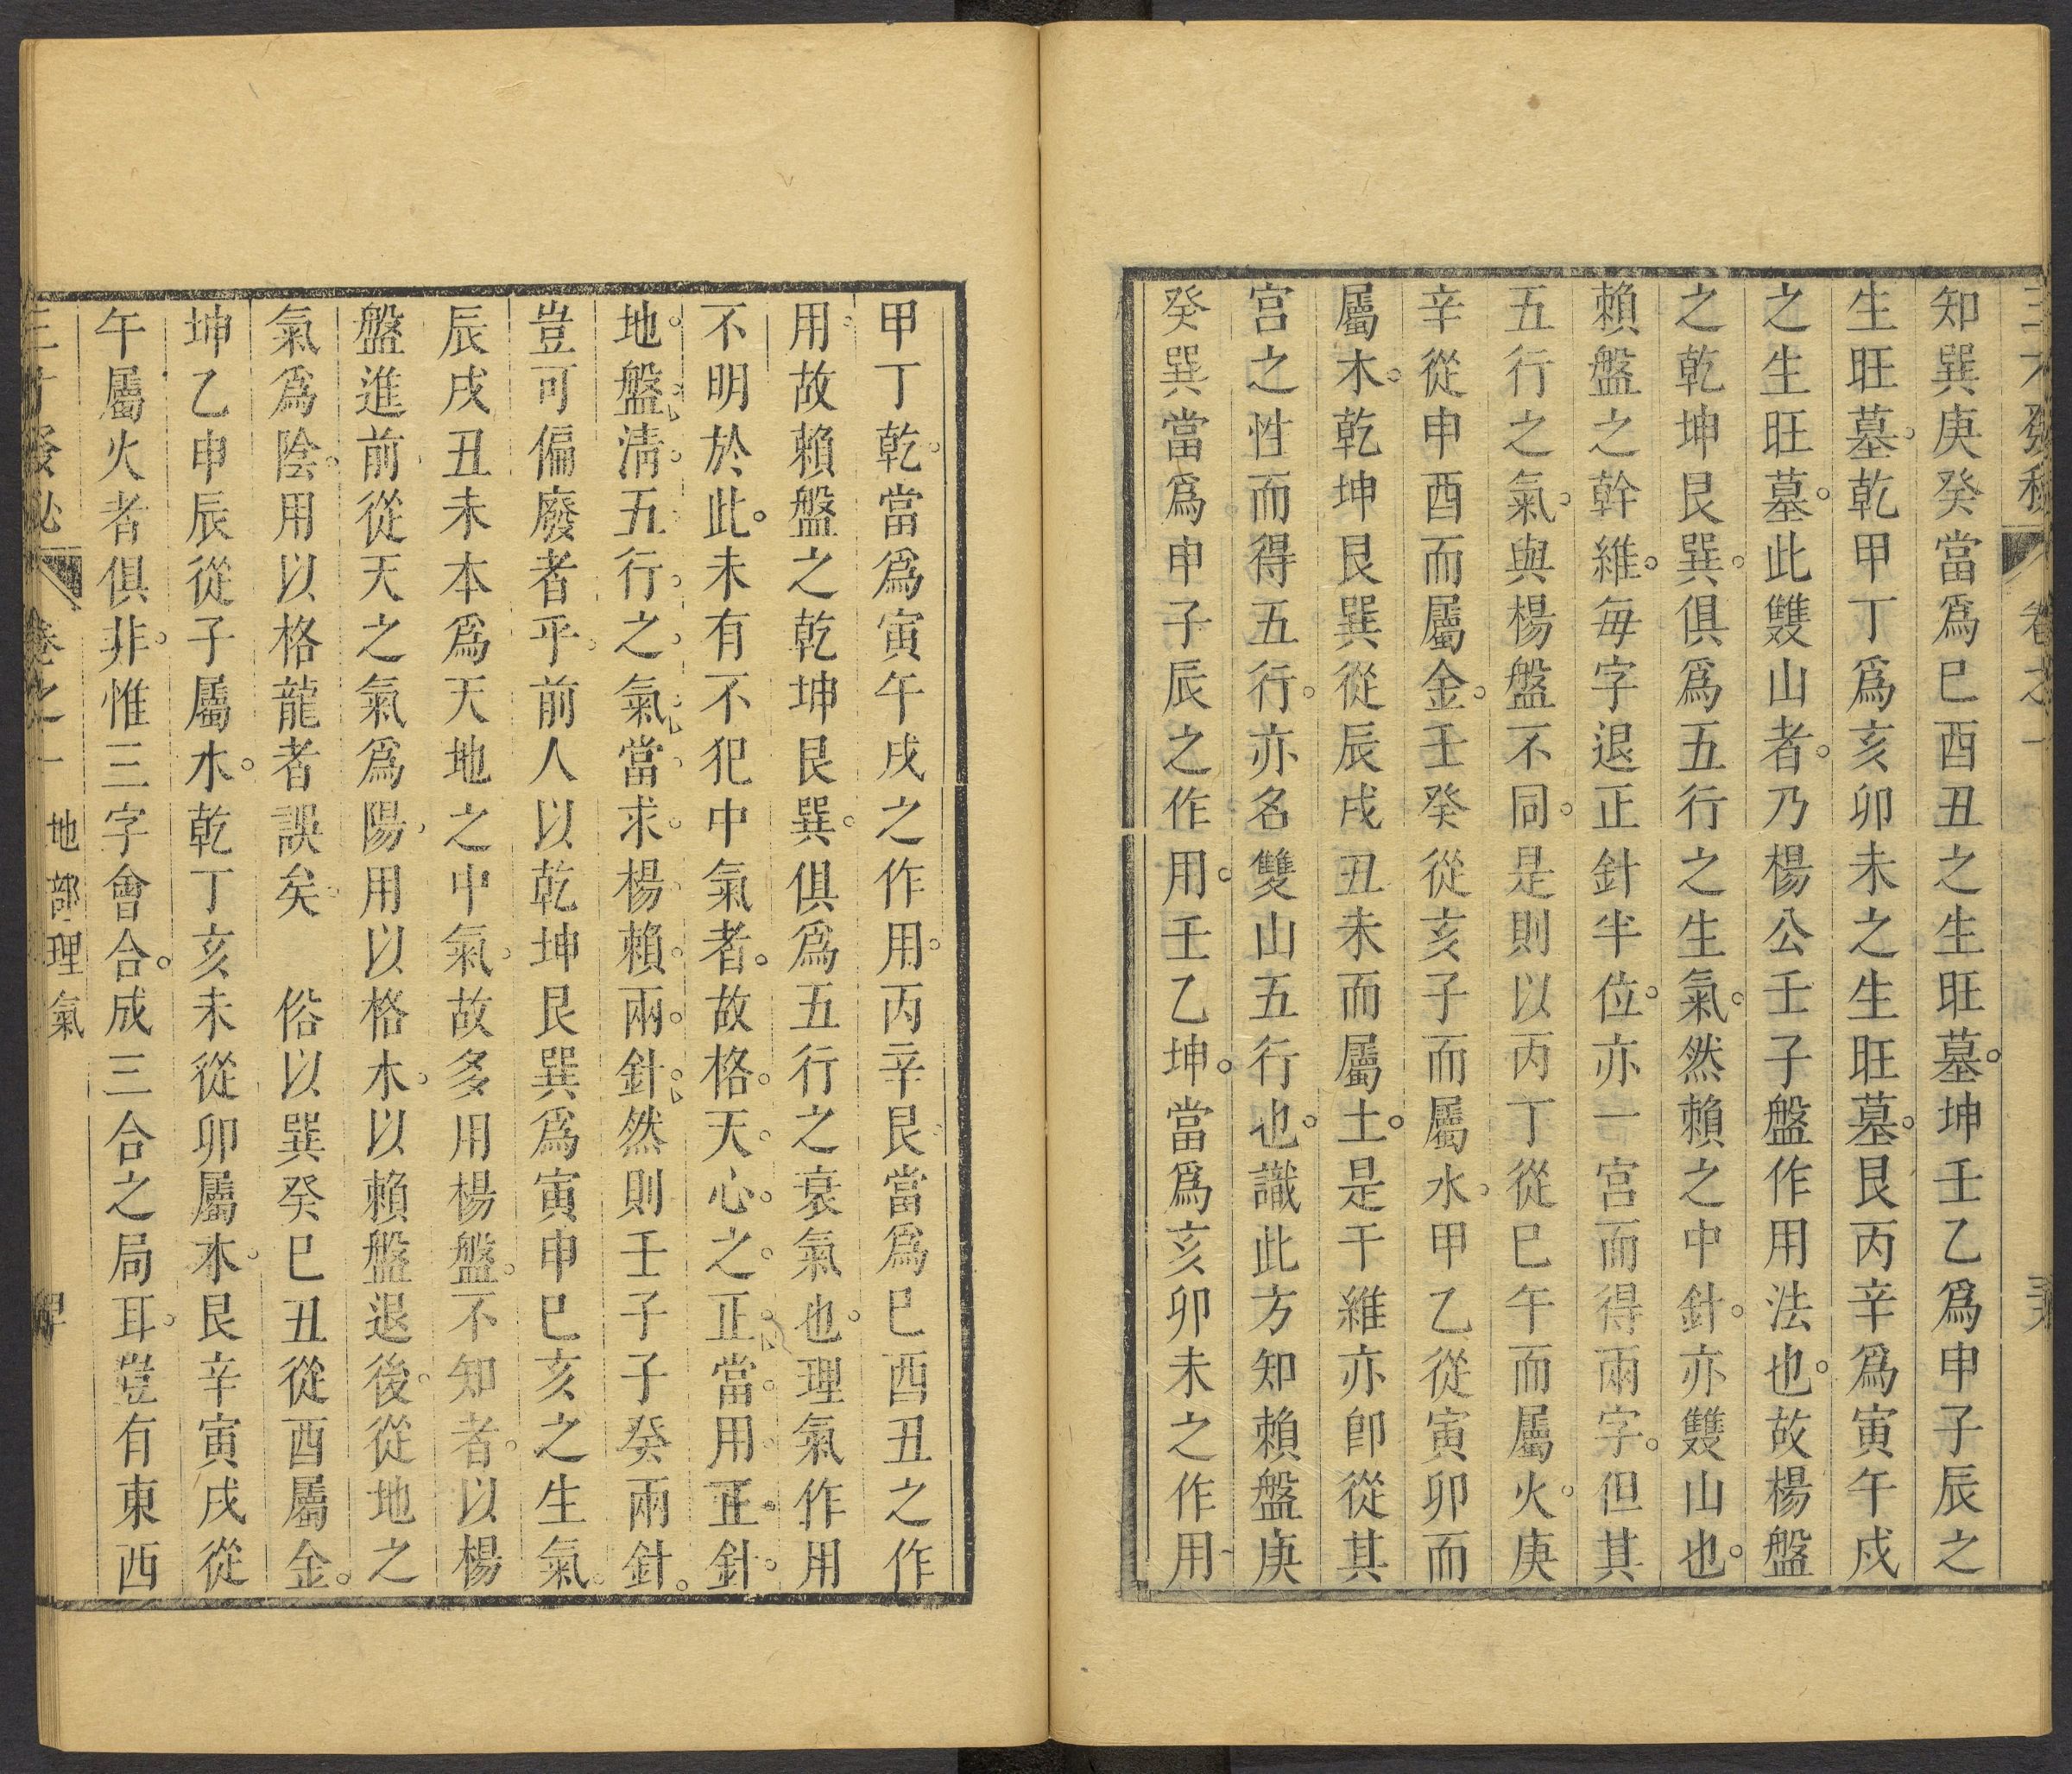 知巽庚癸當爲巳酉丑之生旺墓。坤壬乙爲申子辰之
生旺墓。乾甲丁爲亥卯未之生旺墓。艮丙辛爲寅午戍
之生旺墓。此雙山者。乃楊公壬子盤作用法也。故楊盤
之乾坤艮巽。俱爲五行之生氣。然賴之中針。亦雙山也。
賴盤之幹維。每字退正針半位。亦一宫而得兩字。但其
五行之氣。與楊盤不同。是則以丙丁從巳午而屬火。庚
辛從申酉而屬金。壬癸從亥子而屬水。甲乙從寅卯而
屬木。乾坤艮巽從辰戍丑未而屬土。是干維亦卽從其
宫之性而得五行。亦名雙山五行也。識此方知賴盤庚
癸巽當爲申子辰之作用。壬乙坤。當爲亥卯未之作用
甲丁乾。當爲寅午戍之作用。丙辛艮。當爲巳酉丑之作
用。故賴盤之乾坤艮巽。俱爲五行之衰氣也。理氣作用
不明於此。未有不犯中氣者。故格。天。心。之。正。當。用。正。針。
地。盤。淸。五。行。之。氣。當。求。楊。賴。兩。針。然則壬子子癸兩針。
豈可偏廢者乎。前人以乾坤艮巽爲寅申巳亥之生氣。
辰戍丑未本爲天地之中氣。故多用楊盤。不知者。以楊
盤進前從天之氣爲陽。用以格水。以賴盤退後。從地之
氣爲陰。用以格龍者誤矣。 俗以巽癸巳丑從酉屬金。
坤乙申辰從子屬水。乾丁亥未從卯屬木。艮辛寅戍從
午屬火者俱非。惟三字會合。成三合之局耳。豈有東西
卷之一 地部理氣